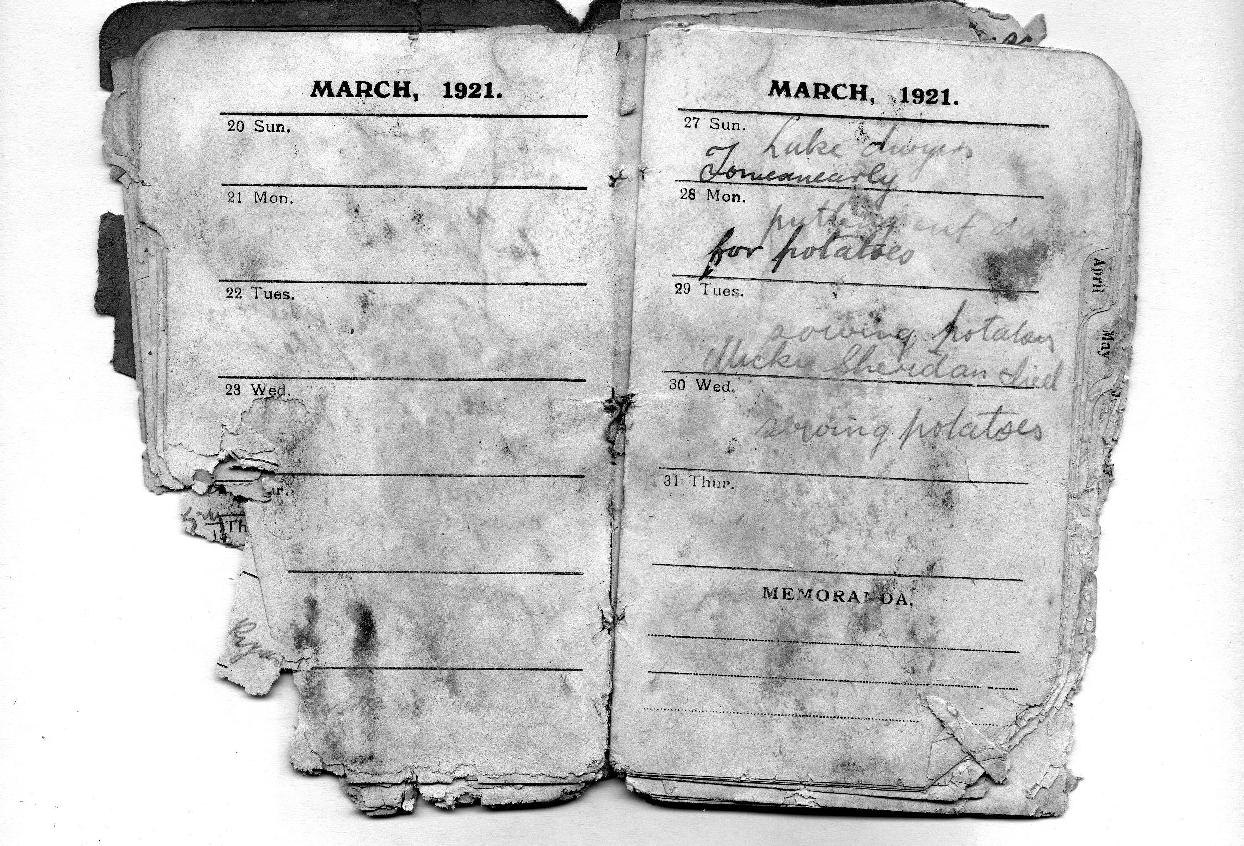 MARCH, 1921.
20 Sun.
21 Mon.
22 Tues.
23 Wed.
Th
MARCH, 1921.
27 Sun.
Luke dwyers
Tomeanearly
28 Mon.
out
for potatoes
29 Tues.
sowing potatoes
Mickie Sheridan died
30 Wed.
sowing potatoes
31 Thur.
MEMORANDA.
April
May